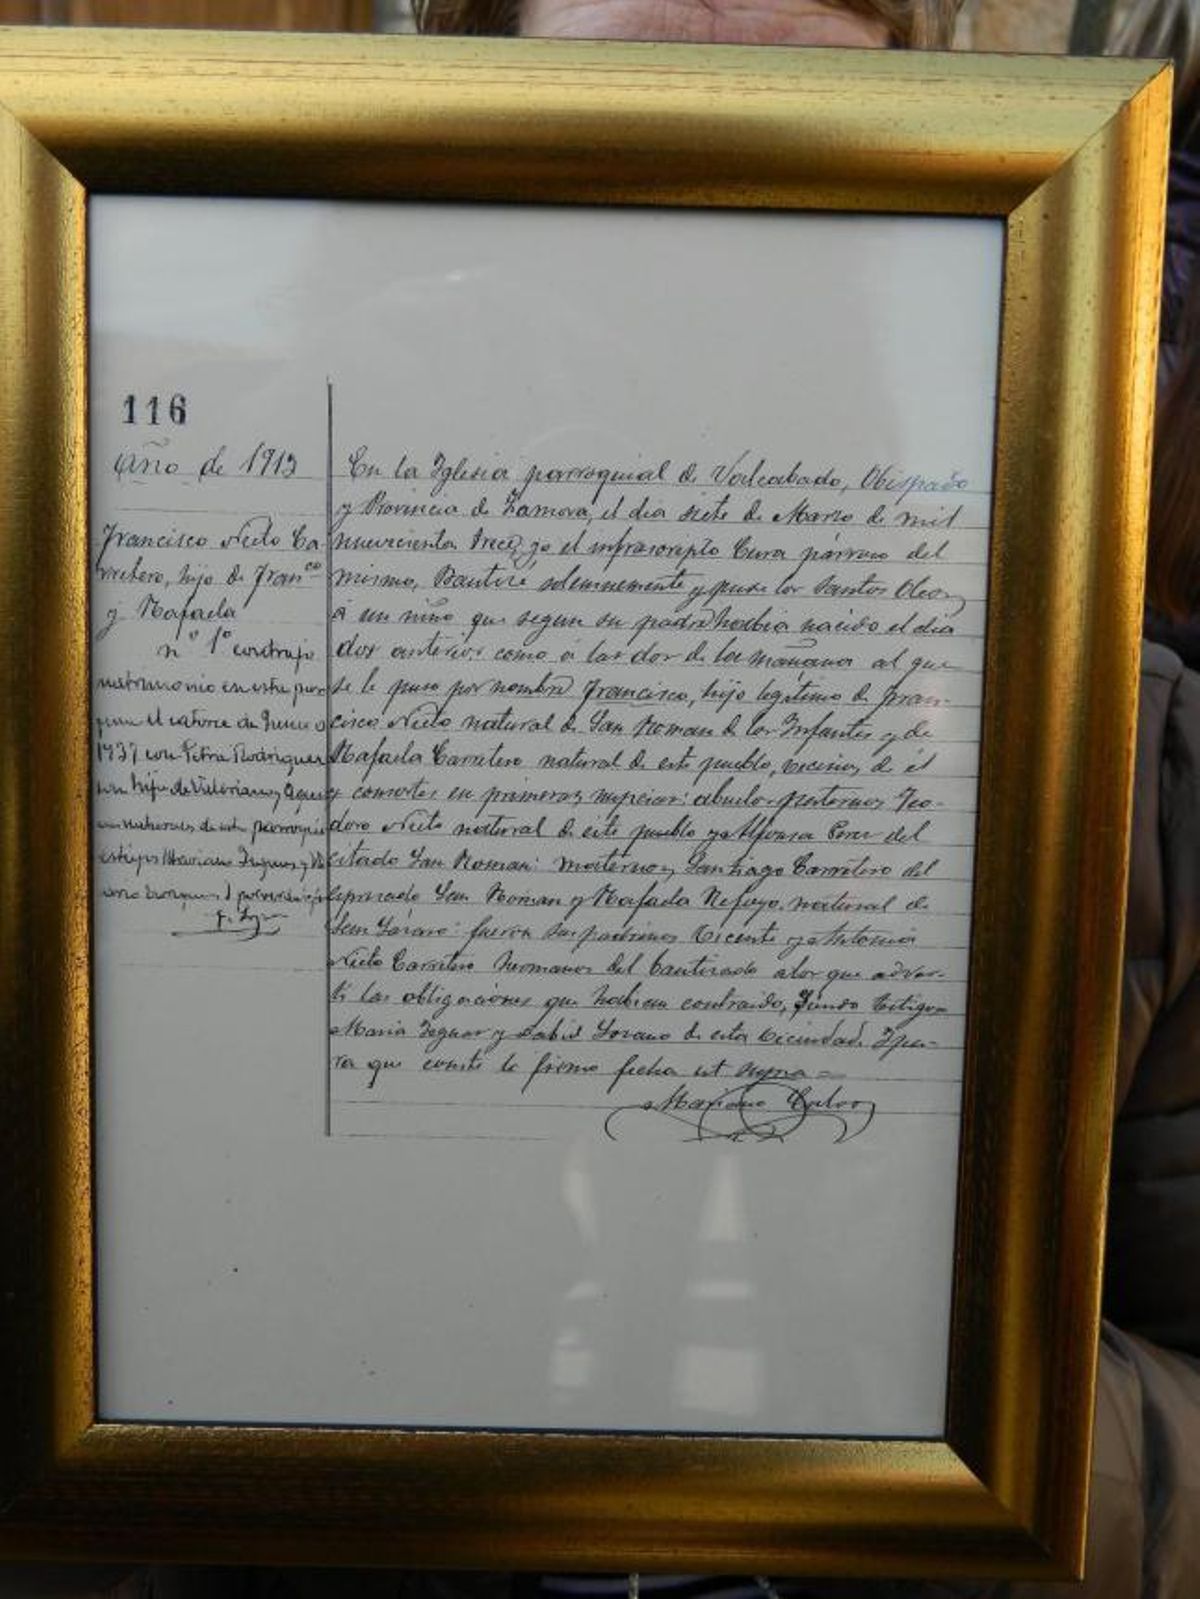 116
Año de 1913
Francisco Nieto Ca-
rretero, hijo de Fran.co
y Rafaela
nº 1º contrajo
matrimonio en esta parro
quia el catorce de
1937 con Petra Rodríguez
hija de Valeriano y
naturales de esta parroquia
testigos Mariano y
En la Iglesia parroquial de Valcabado, Obispado
y Provincia de Zamora, el dia siete de Marzo de mil
novecientos trece, yo el infrascripto Cura párroco del
mismo, Bauticé solemnemente y puse los Santos Oleos
á un niño que segun su padre habia nacido el dia
dos anterior como á las dos de la mañana al que
se le puso por nombre Francisco, hijo legítimo de Fran-
cisco Nieto natural de San Roman de los Infantes y de
Rafaela Carretero natural de este pueblo, vecinos de él
y consortes en primeras nupcias: abuelos paternos Teo-
doro Nieto natural de este pueblo y Alfonsa Perez del
citado San Roman: maternos, Santiago Carretero del
espresado San Roman y Rafaela Refoyo natural de
San Lázaro: fueron sus padrinos Vicente y Antonia
Nieto Carretero hermanos del bautizado a los que adver-
tí las obligaciones que habian contraido, siendo testigos
Maria y David Lozano de esta vecindad. Y pa-
ra que conste lo firmo fecha ut supra =
Mariano Calvo